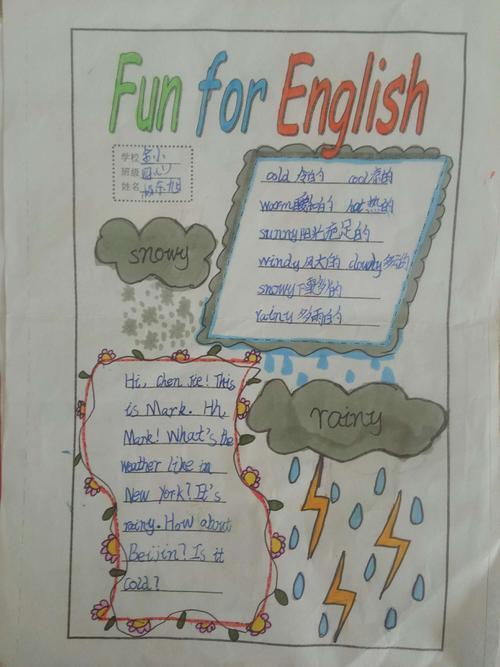 Fun for English
学校
班级
姓名
cold 冷的 cool 凉的
warm 暖和的 hot 热的
sunny 阳光充足的
windy 风大的 cloudy 多云的
snowy 下雪的
rainy 多雨的
snowy
rainy
Hi, Chen Jie! This
is Mark. Hi,
Mark! What's the
weather like in
New York? It's
rainy. How about
Beijin? Is it
cold?